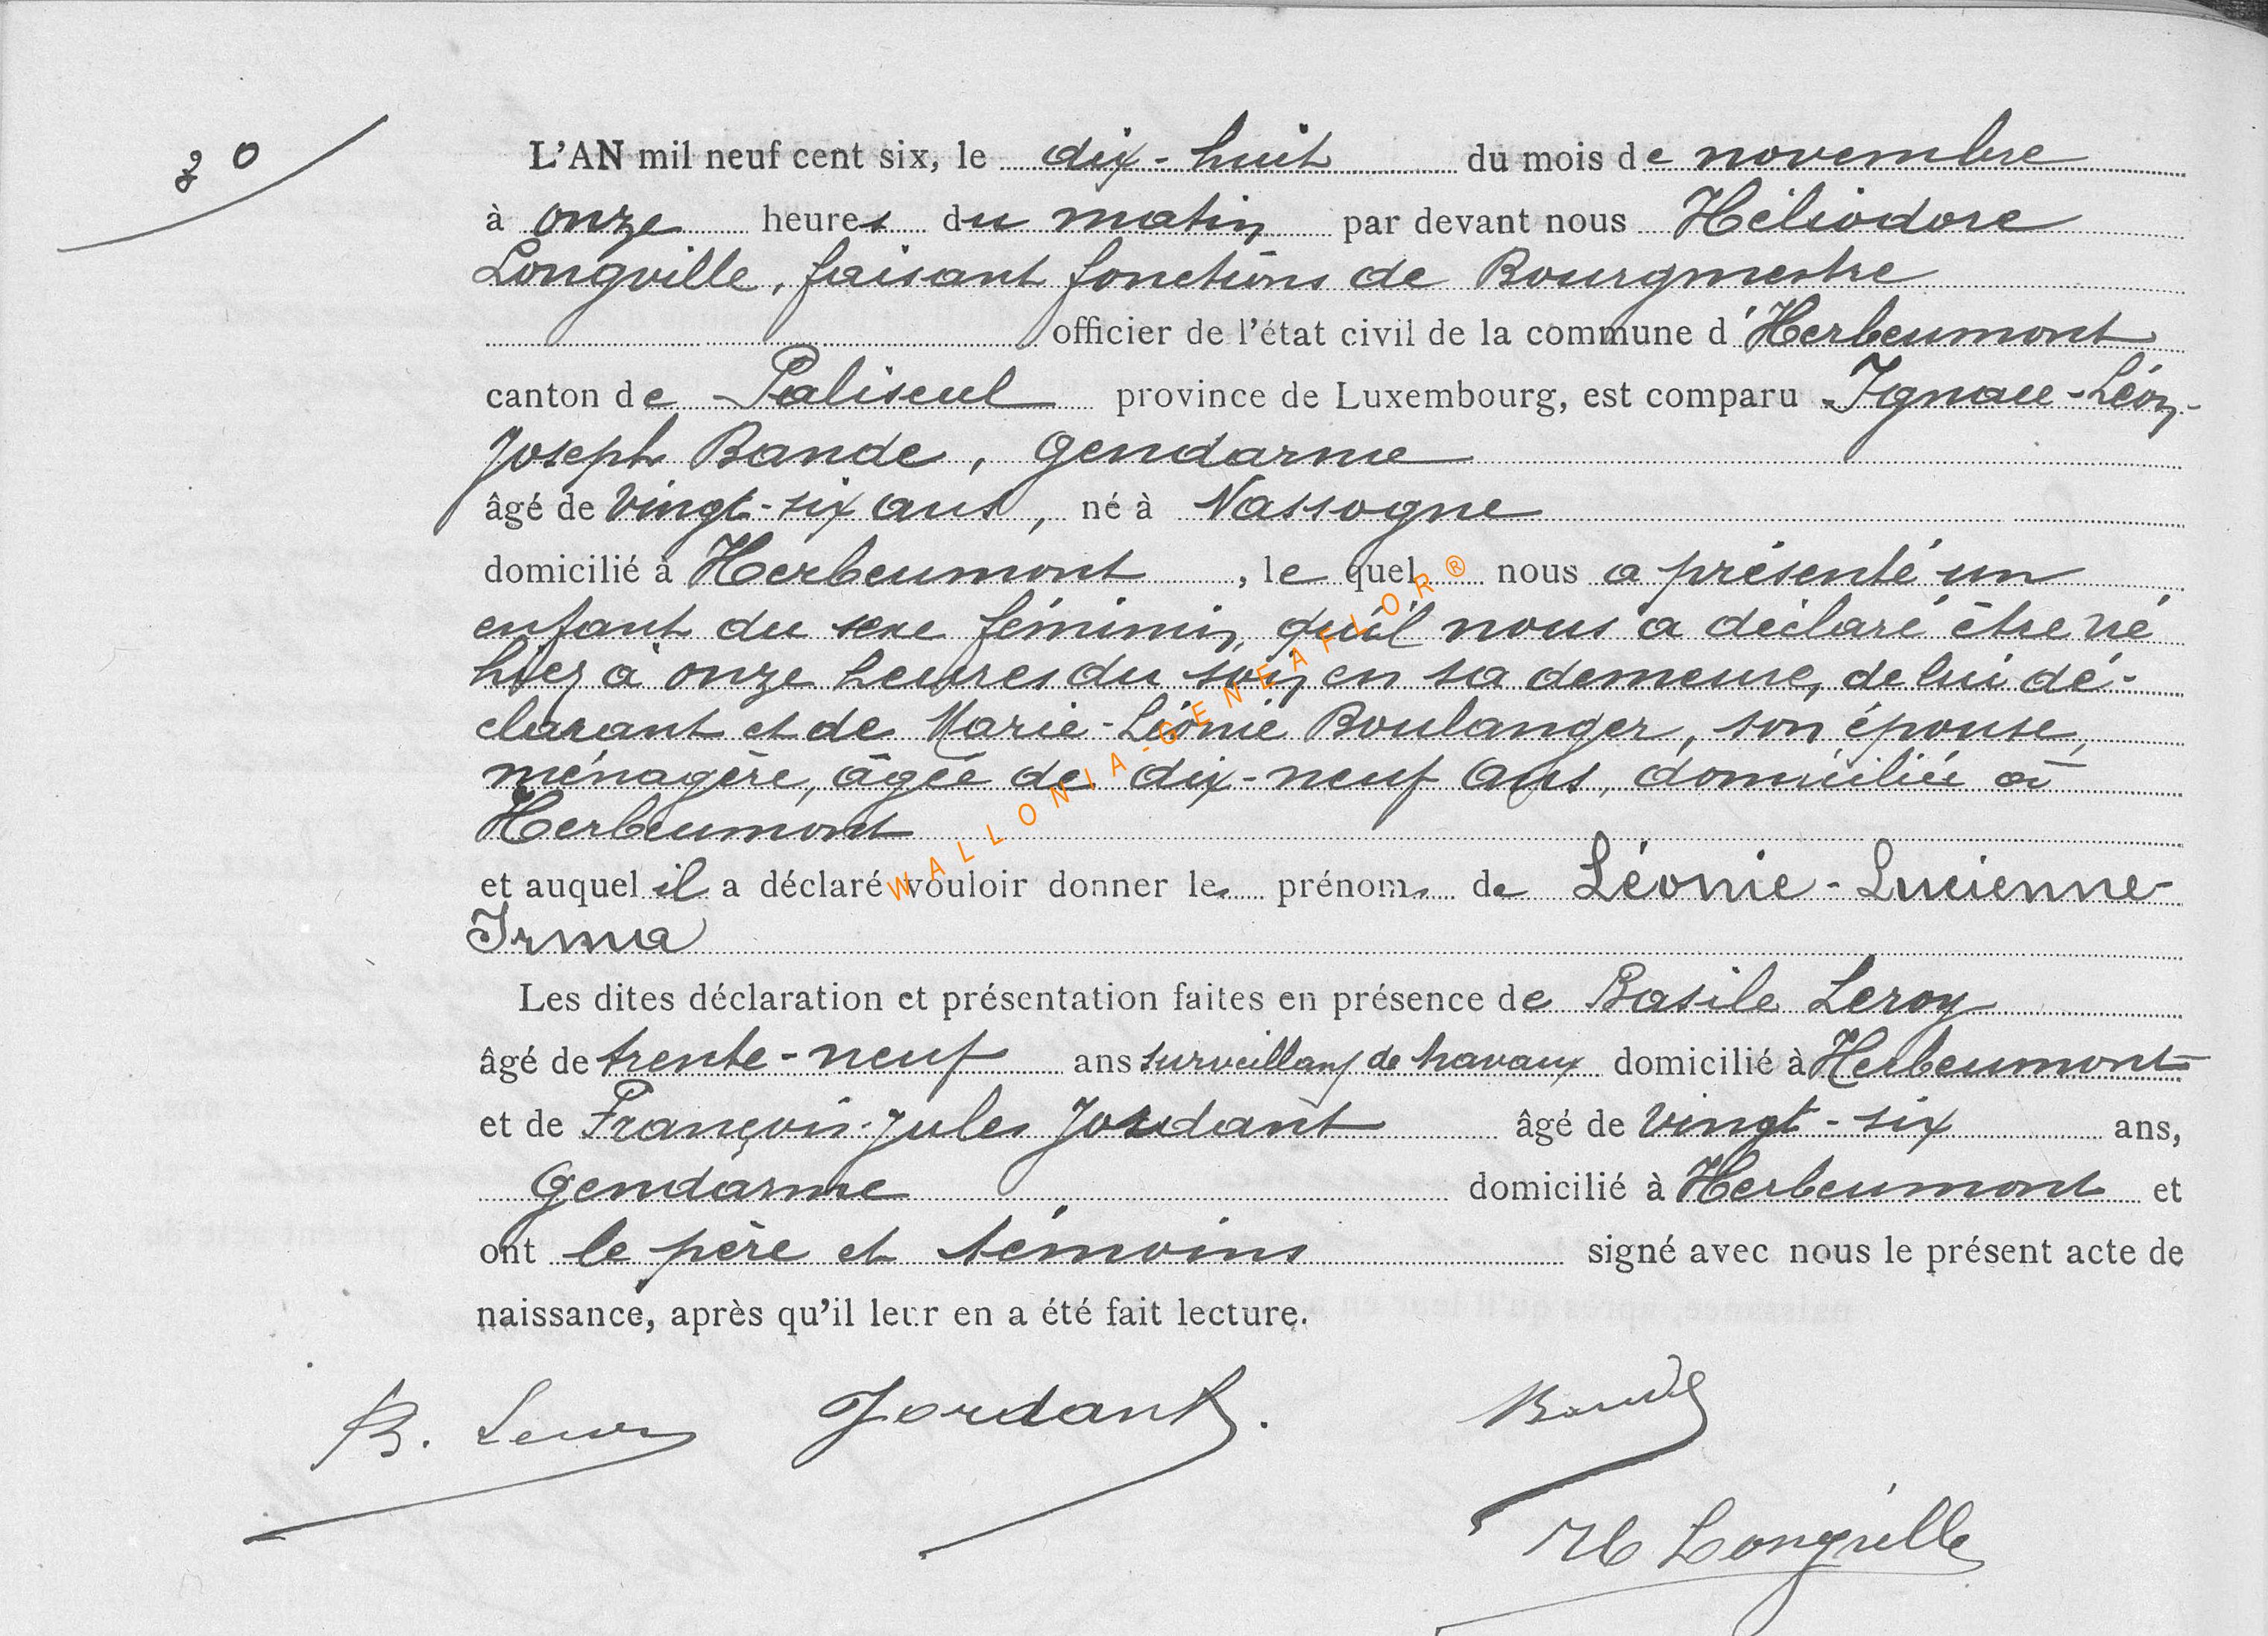 30
L'AN mil neuf cent six, le dix-huit du mois de novembre
à onze heures du matin par devant nous Héliodore
Longville, faisant fonctions de Bourgmestre
officier de l'état civil de la commune d'Herbeumont
canton de Paliseul province de Luxembourg, est comparu Ignace-Léon-
Joseph Bande, Gendarme
âgé de vingt-six ans, né à Nassogne
domicilié à Herbeumont, le quel nous a présenté un
enfant du sexe féminin, qu'il nous a déclaré être né
hier à onze heures du soir, en sa demeure, de lui dé-
clarant et de Marie-Léonie Boulanger, son épouse,
ménagère, âgée de dix-neuf ans, domiciliée à
Herbeumont
et auquel il a déclaré vouloir donner les prénoms de Léonie-Lucienne-
Irma
Les dites déclaration et présentation faites en présence de Basile Leroy
âgé de trente-neuf ans surveillant de travaux domicilié à Herbeumont
et de François-Jules Jordant âgé de vingt-six ans,
Gendarme domicilié à Herbeumont et
ont le père et témoins signé avec nous le présent acte de
naissance, après qu'il leur en a été fait lecture.
B. Leroy Jordant. Bande
H Longville
WALLONIA-GENEAFLOR®